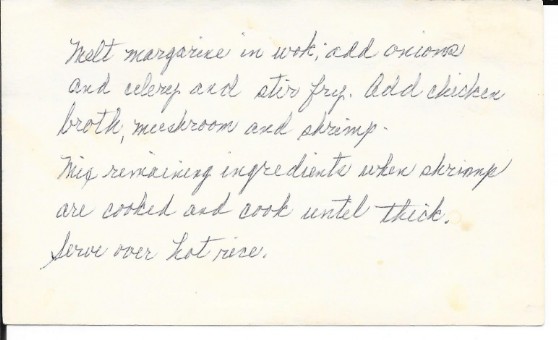 Melt margarine in wok; add onions
and celery and stir fry. Add chicken
broth, mushroom and shrimp.
Mix remaining ingredients when shrimp
are cooked and cook until thick.
Serve over hot rice.